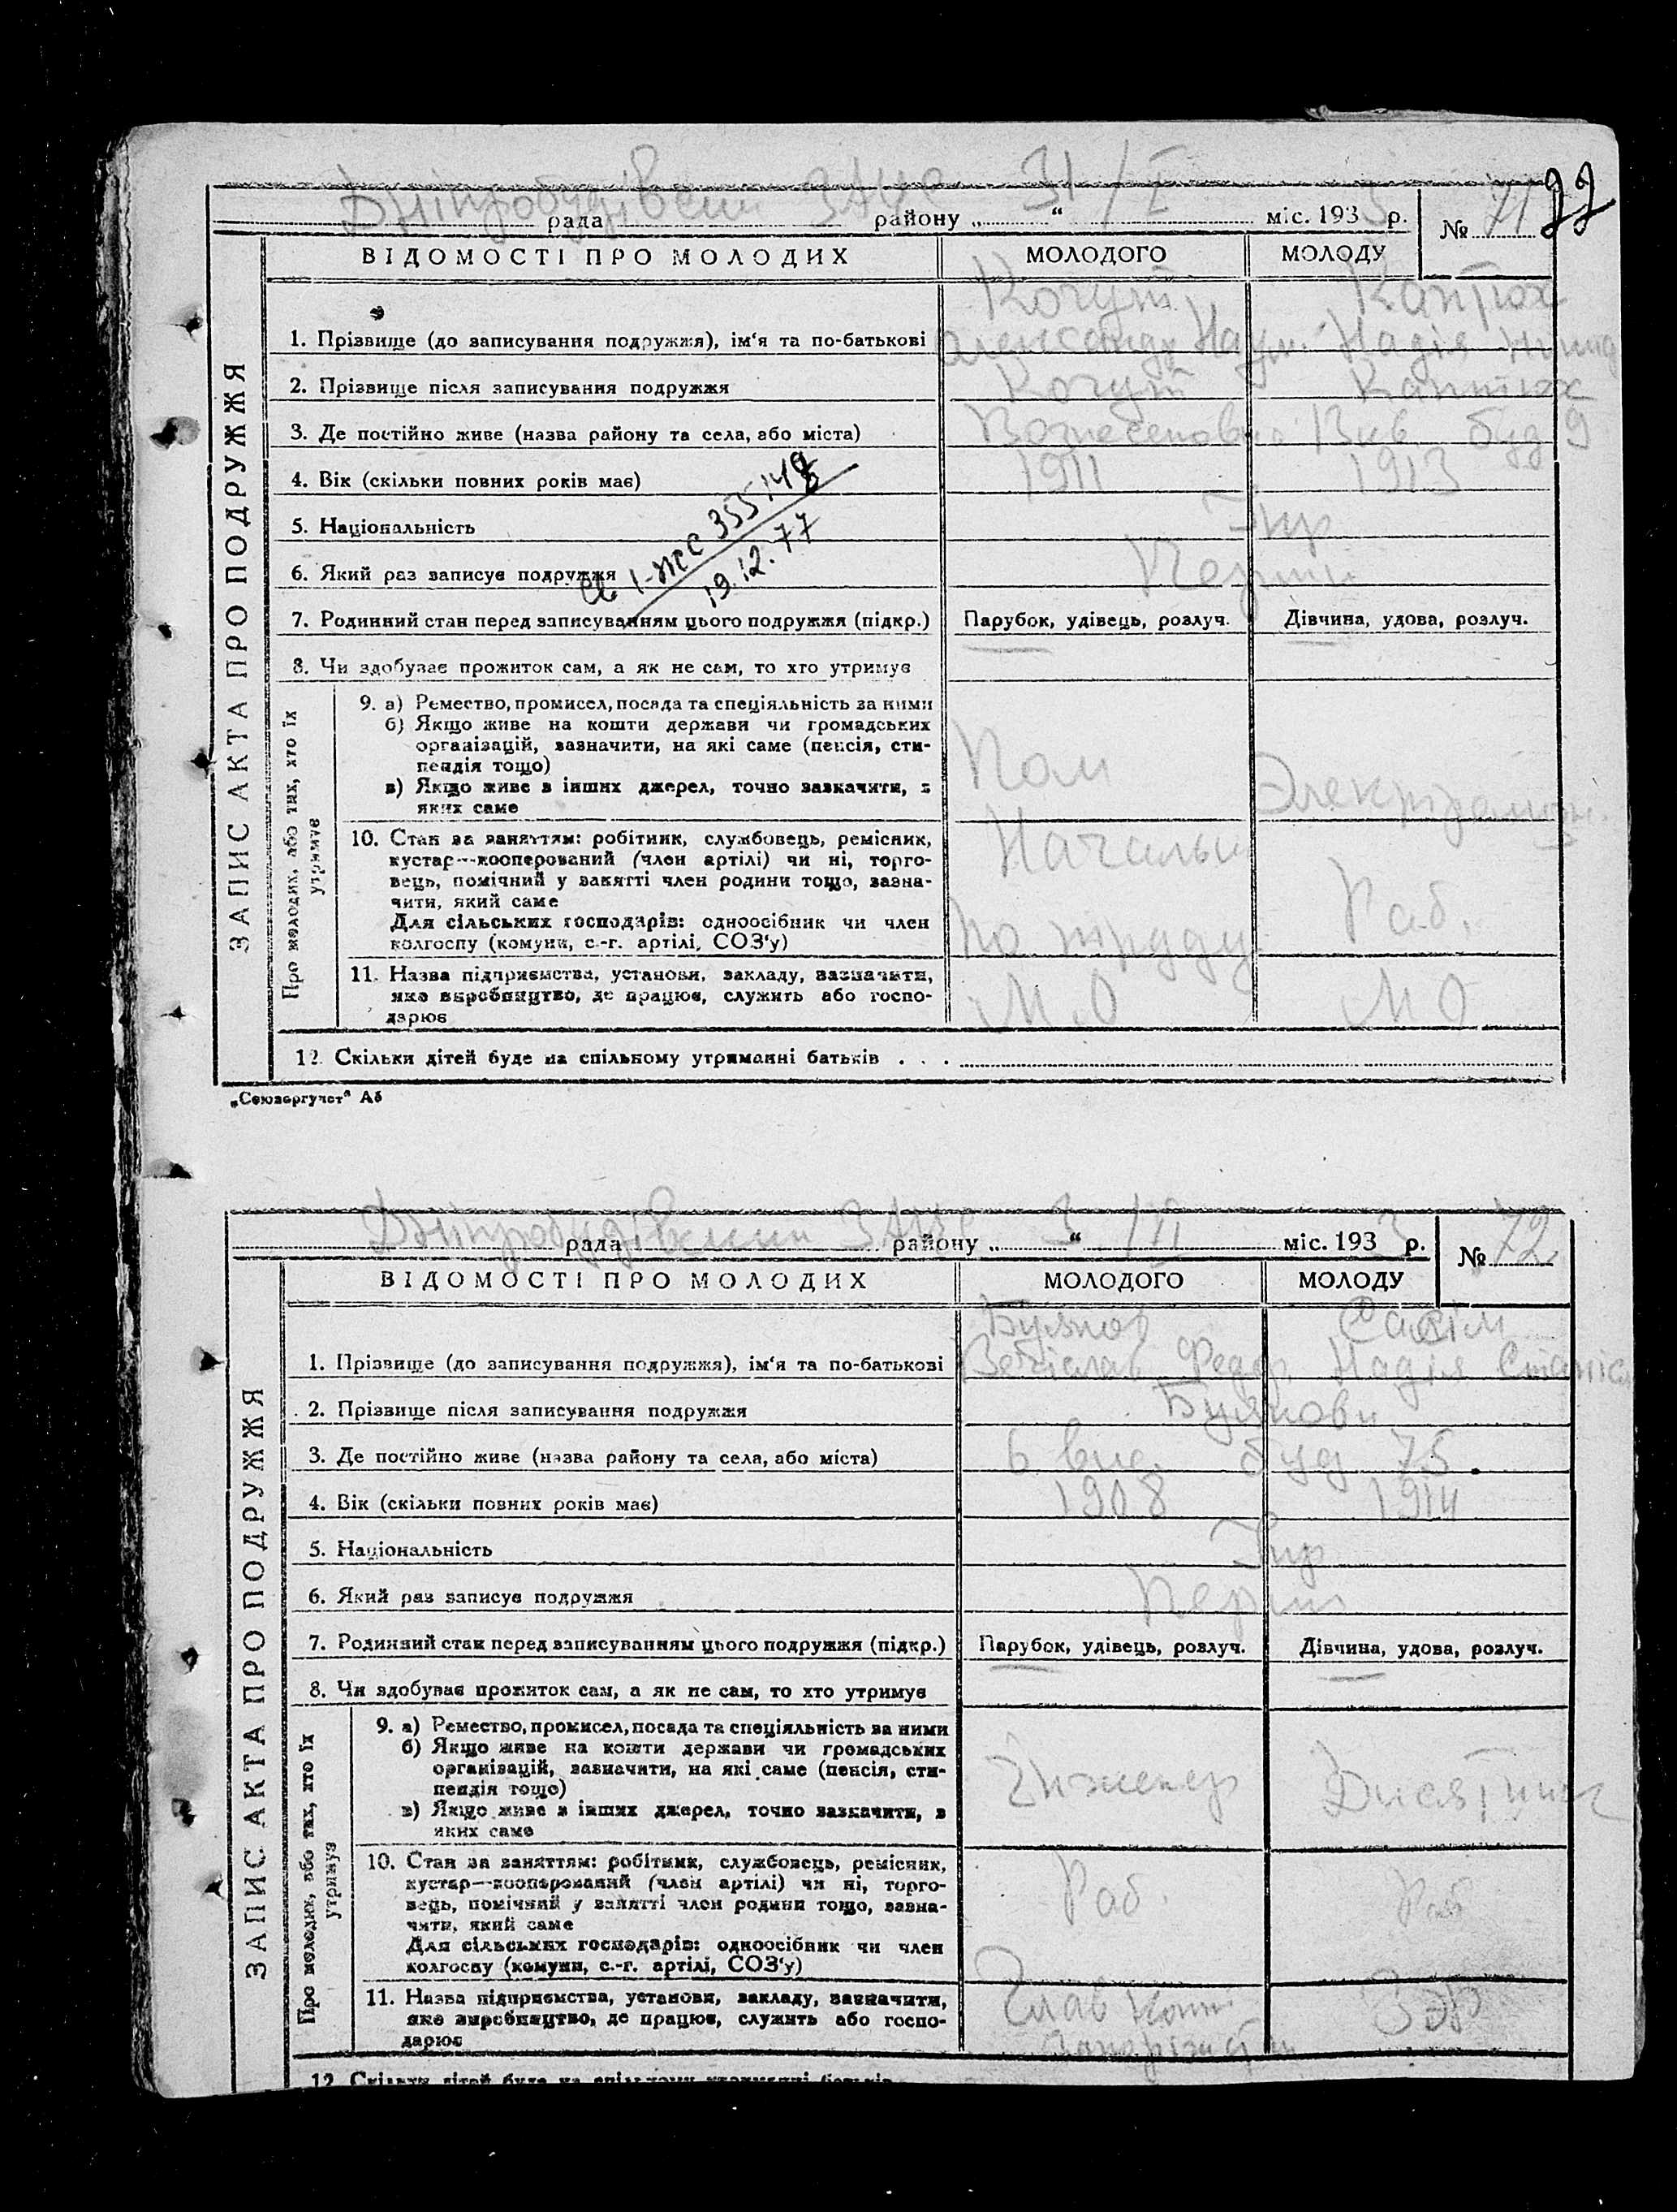 Дніпробудівськ ЗАГС 31/I 3 71
рада району „ “ міс. 193 р. №
ВІДОМОСТІ ПРО МОЛОДИХ МОЛОДОГО МОЛОДУ
ЗАПИС АКТА ПРО ПОДРУЖЖЯ
Кочут
1. Прізвище (до записування подружжя), ім‘я та по-батькові Надія
2. Прізвище після записування подружжя Кочут
3. Де постійно живе (назва району та села, або міста) буд 9
4. Вік (скільки повних років має) 1911 1913
5. Національність Укр
6. Який раз записує подружжя Перши
355148
19.12.77
7. Родинний стан перед записуванням цього подружжя (підкр.) Парубок, удівець, розлуч. Дівчина, удова, розлуч.
8. Чи здобуває прожиток сам, а як не сам, то хто утримує
Про молодих, або тих, хто їх утримує
9. а) Ремество, промисел, посада та спеціяльність за ними
б) Якщо живе на кошти держави чи громадських
організацій, зазначити, на які саме (пенсія, сти-
пендія тощо) Пом
в) Якщо живе з інших джерел, точно зазначити, з
яких саме
10. Стан за заняттям: робітник, службовець, ремісник,
кустар—кооперований (член артілі) чи ні, торго- Начальн
вець, помічний у занятті член родини тощо, зазна-
чити, який саме Раб.
Для сільських господарів: одноосібник чи член
колгоспу (комуни, с.-г. артілі, СОЗ‘у) по труду
11. Назва підприємства, установи, закладу, зазначити,
яке виробництво, де працює, служить або госпо- М.О МО
дарює
12. Скільки дітей буде на спільному утриманні батьків . . .
„Союзоргучет“ Аб
Дніпробудівський ЗАГС 3/II 3 72
рада району „ “ міс. 193 р. №
ВІДОМОСТІ ПРО МОЛОДИХ МОЛОДОГО МОЛОДУ
ЗАПИС АКТА ПРО ПОДРУЖЖЯ
Буянов
1. Прізвище (до записування подружжя), ім‘я та по-батькові Федор Надія
2. Прізвище після записування подружжя Буянови
3. Де постійно живе (назва району та села, або міста) 6 вид. буд 75
4. Вік (скільки повних років має) 1908 1914
5. Національність Укр
6. Який раз записує подружжя Перши
7. Родинний стан перед записуванням цього подружжя (підкр.) Парубок, удівець, розлуч. Дівчина, удова, розлуч.
8. Чи здобуває прожиток сам, а як не сам, то хто утримує
Про молодих, або тих, хто їх утримує
9. а) Ремество, промисел, посада та спеціяльність за ними
б) Якщо живе на кошти держави чи громадських
організацій, зазначити, на які саме (пенсія, сти-
пендія тощо) Інженер
в) Якщо живе з інших джерел, точно зазначити, з
яких саме
10. Стан за заняттям: робітник, службовець, ремісник,
кустар—кооперований (член артілі) чи ні, торго- Раб. Раб
вець, помічний у занятті член родини тощо, зазна-
чити, який саме
Для сільських господарів: одноосібник чи член
колгоспу (комуни, с.-г. артілі, СОЗ‘у)
11. Назва підприємства, установи, закладу, зазначити,
яке виробництво, де працює, служить або госпо-
дарює
12. Скільки дітей буде на спільному утриманні батьків